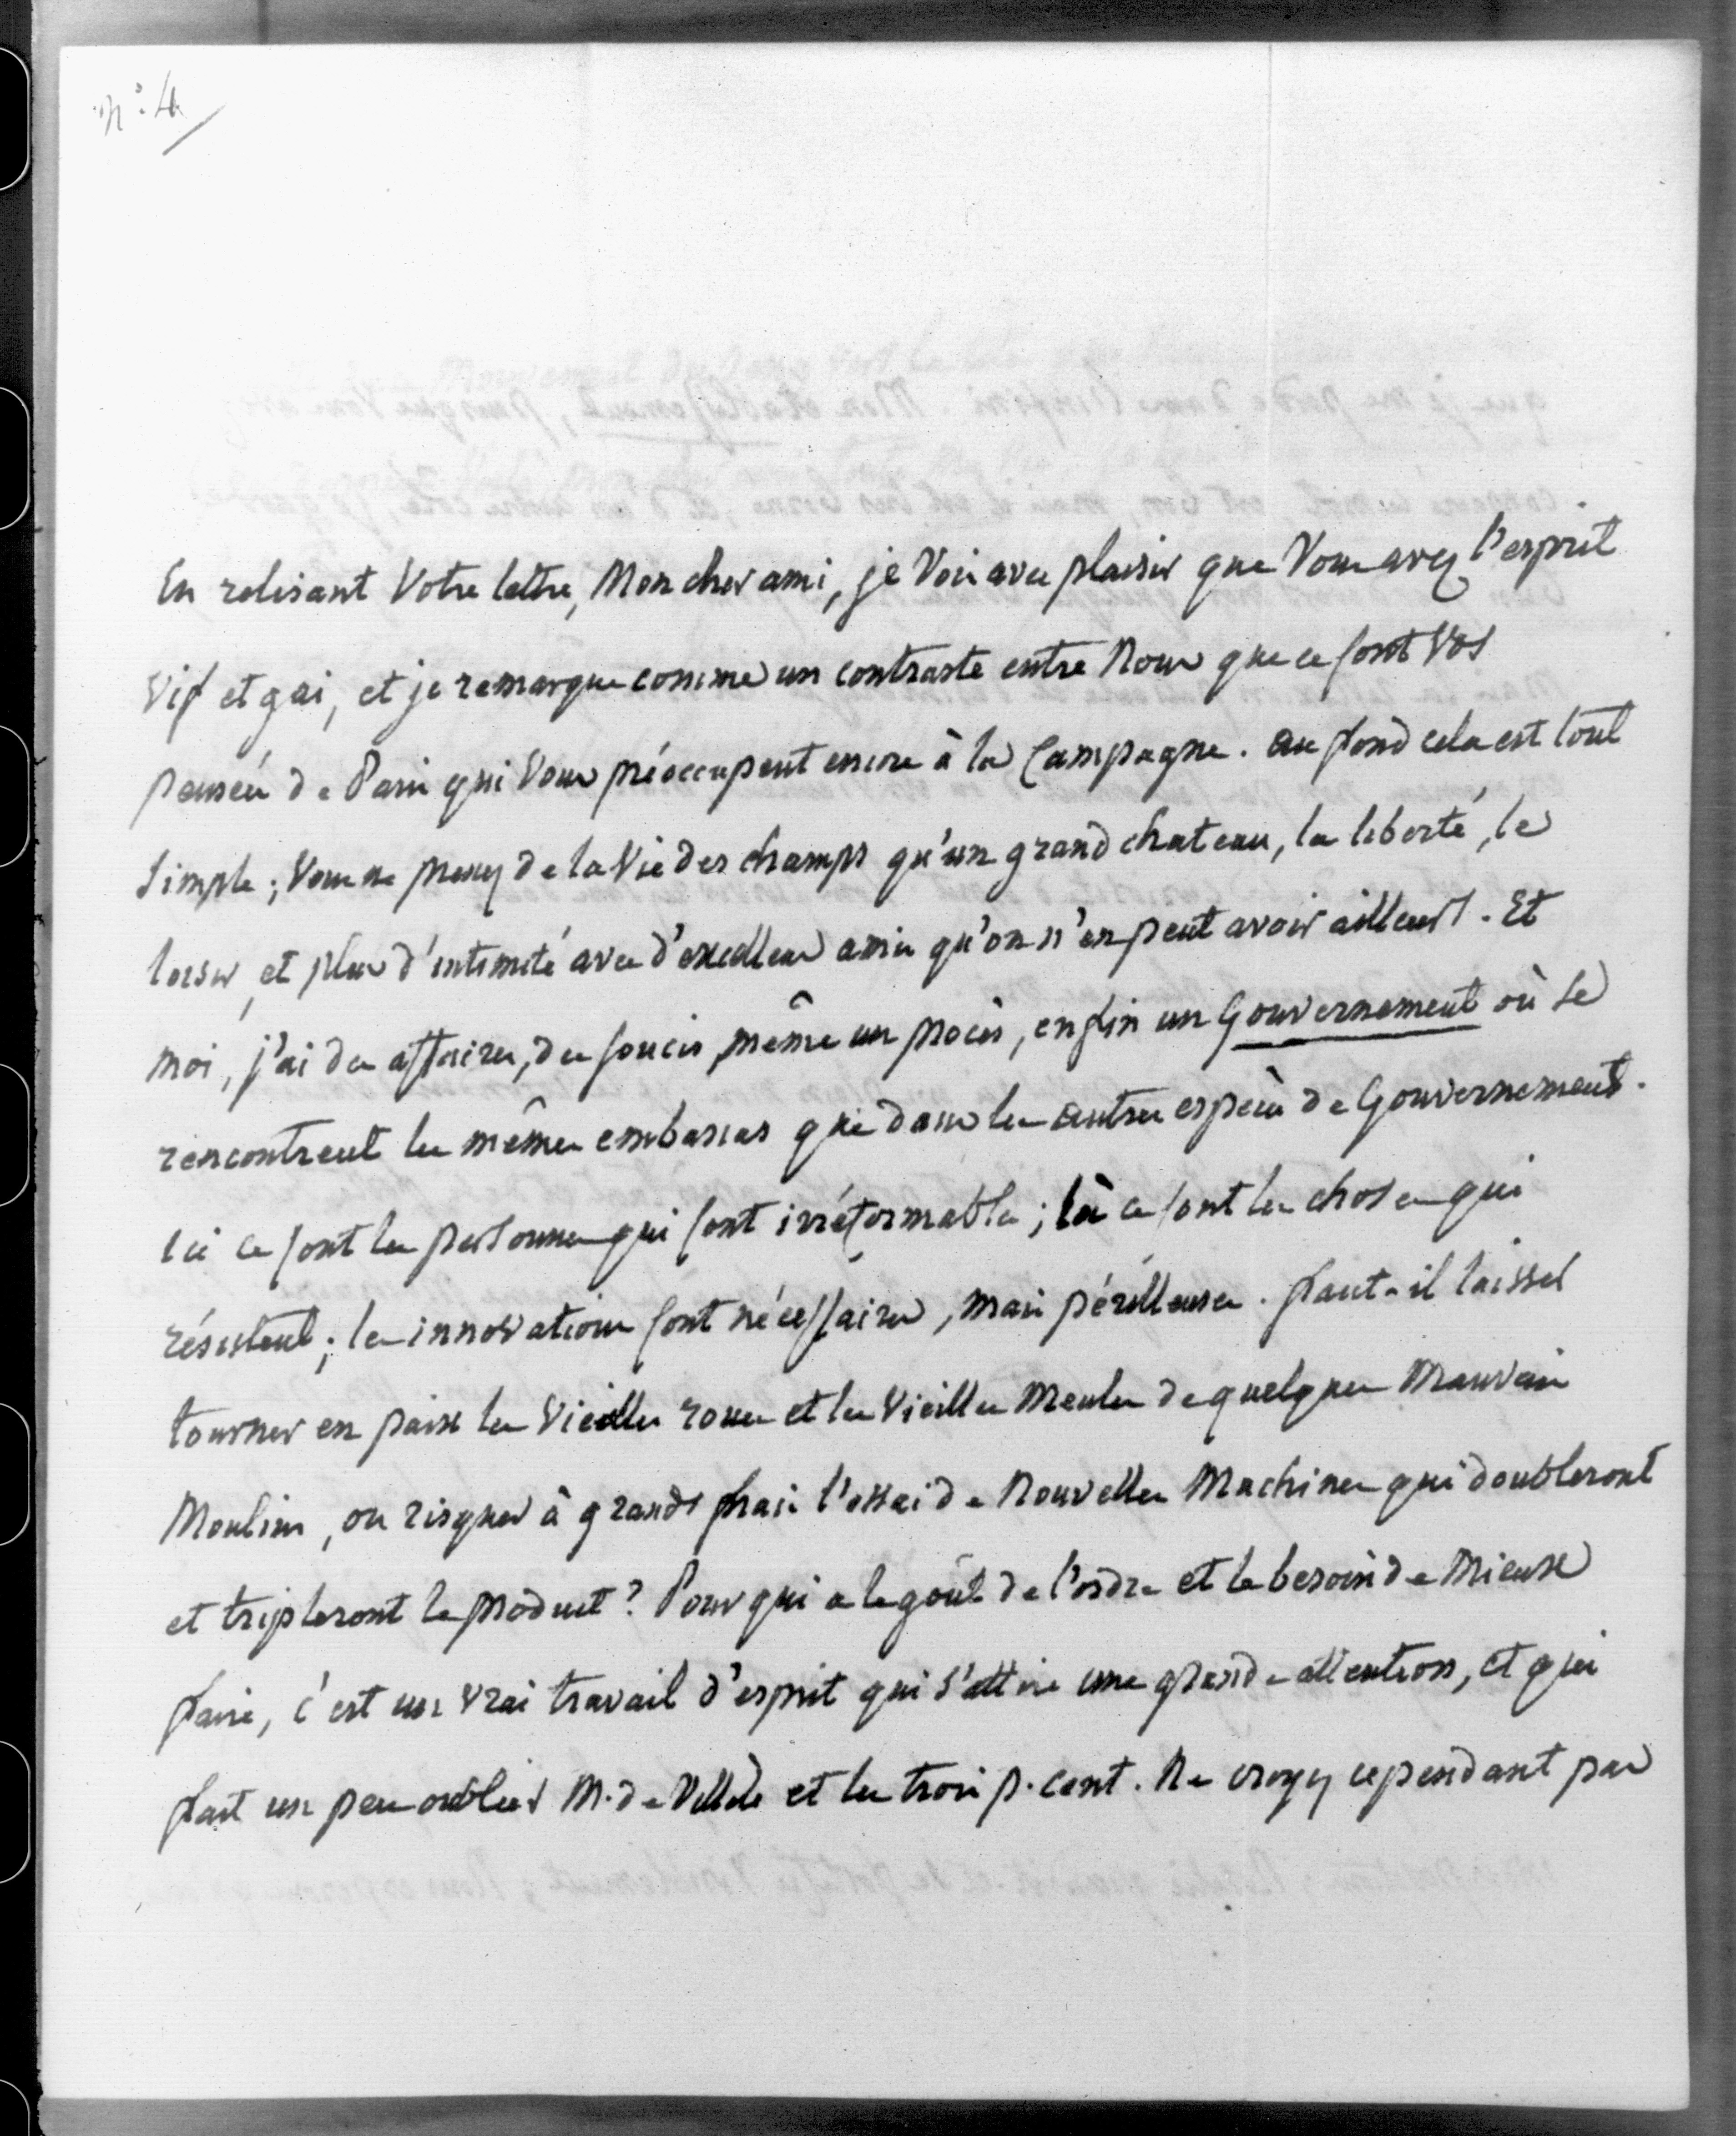 n°: 4
En relisant Votre lettre, Mon cher ami, je Vois avec plaisir que Vous avez l'esprit
Vif et gai, et je remarque comme un contraste entre Nous que ce sont Vos
pensées de Paris qui Vous préoccupent encore à la Campagne. au fond cela est tout
simple; Vous ne prenez de la Vie des champs qu'un grand chateau, la liberté, le
loisir, et plus d'intimité avec d'excellens amis qu'on n'en peut avoir ailleurs. Et
moi, j'ai des affaires, des soucis, même un procès, enfin un Gouvernement où se
rencontrent les mêmes embarras que dans les autres espèces de Gouvernements.
Ici ce sont les personnes qui sont irréformables; là ce sont les choses qui
résistent; les innovations sont nécessaires, mais périlleuses. faut-il laisser
tourner en paix les Vieilles roues et les Vieilles Meules de quelques Mauvais
Moulins, ou risquer à grands frais l'essai de Nouvelles Machines qui doubleront
et tripleront le produit? Pour qui a le goût de l'ordre et le besoin de Mieux
faire, c'est un vrai travail d'esprit qui s'attire une grande attention, et qui
fait un peu oublier M. de Villèle et les trois p. cent. Ne croyez cependant pas